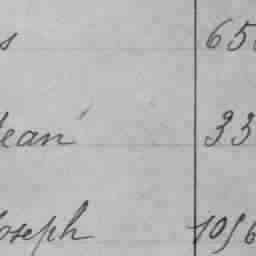 s 65
Jean 33
Joseph 1056